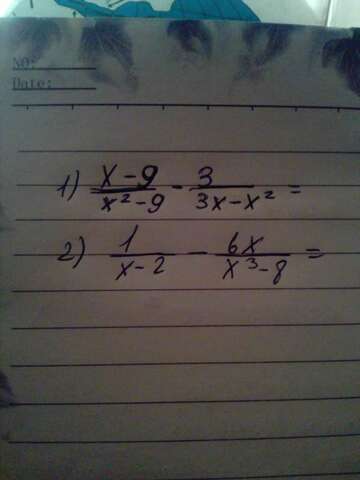 NO:
Date:
1) \frac{x-9}{x²-9} - \frac{3}{3x-x²} =
2) \frac{1}{x-2} - \frac{6x}{x³-8} =